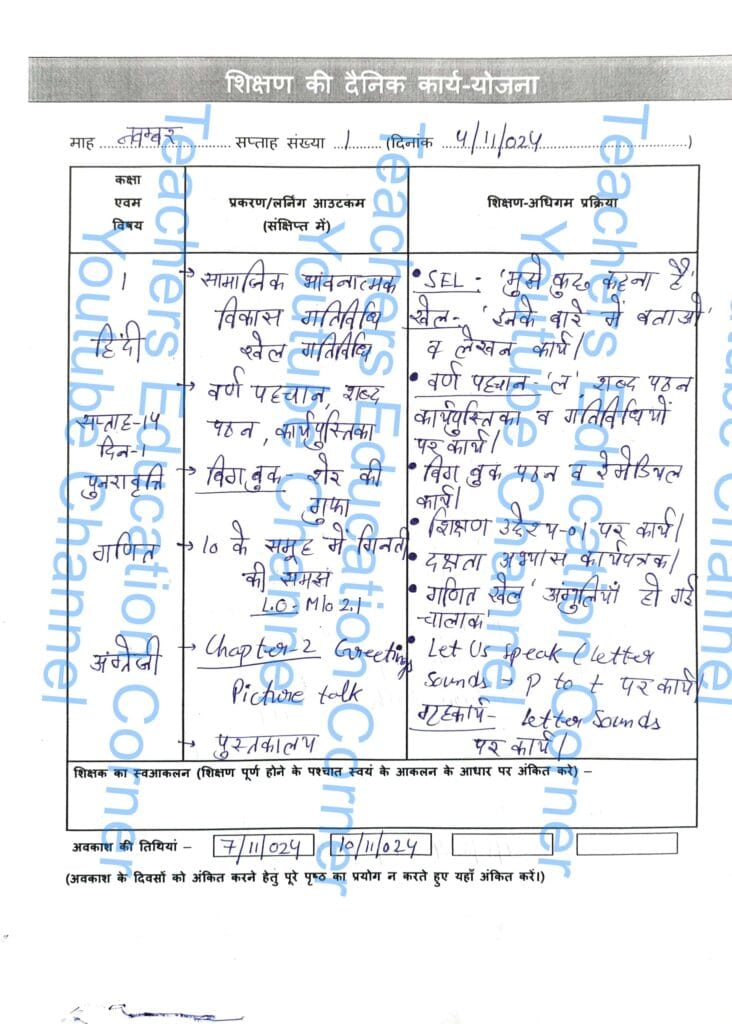 शिक्षण की दैनिक कार्य-योजना
माह ...नवम्बर... सप्ताह संख्या ..1.. (दिनांक ..4/11/024..)
कक्षा एवम विषय
प्रकरण/लर्निंग आउटकम (संक्षिप्त में)
शिक्षण-अधिगम प्रक्रिया
1
हिंदी
सप्ताह-14
दिन-1
पुनरावृत्ति
गणित
अंग्रेजी
→ सामाजिक भावनात्मक
विकास गतिविधि
खेल गतिविधि
→ वर्ण पहचान, शब्द
पठन, कार्यपुस्तिका
→ बिग बुक - शेर की
गुफा
→ 10 के समूह में गिनती
की समझ
L.O - M102.1
→ Chapter-2 Greetings
Picture talk
→ पुस्तकालय
• SEL - 'मुझे कुछ कहना है'
खेल - 'इनके बारे में बताओ'
व लेखन कार्य।
• वर्ण पहचान - 'ल', शब्द पठन
कार्यपुस्तिका व गतिविधियों
पर कार्य।
• बिग बुक पठन व रेमेडियल
कार्य।
• शिक्षण उद्देश्य-01 पर कार्य।
• दक्षता अभ्यास कार्यपत्रक।
• गणित खेल 'अंगुलियाँ हो गई
चालाक'
• Let Us Speak (letter
Sounds → p to t पर कार्य।
गृहकार्य - letter Sounds
पर कार्य।
शिक्षक का स्वआकलन (शिक्षण पूर्ण होने के पश्चात स्वयं के आकलन के आधार पर अंकित करे) –
अवकाश की तिथियां – 7/11/024 10/11/024
(अवकाश के दिवसों को अंकित करने हेतु पूरे पृष्ठ का प्रयोग न करते हुए यहाँ अंकित करें।)
Teachers Education Corner
Youtube Channel
Teachers Education Corner
Youtube Channel
Teachers Education Corner
Youtube Channel